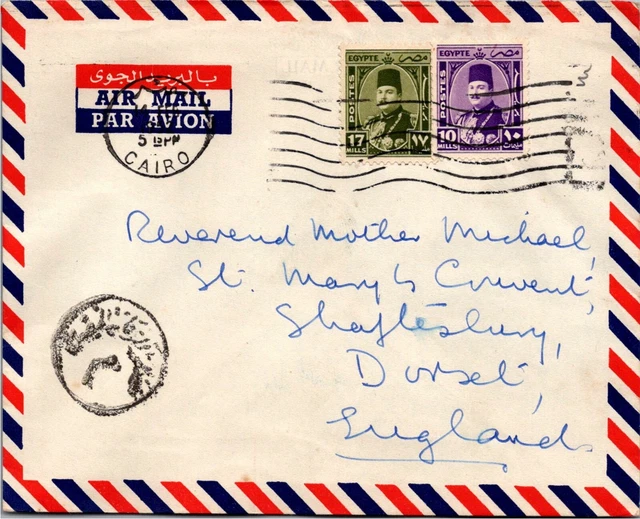 بالبريد الجوى
AIR MAIL
PAR AVION
5 15 PM
CAIRO
EGYPTE مصر
POSTES
17 ١٧
MILLS
EGYPTE مصر
POSTES
10 ١٠
MILLS مليمات
Reverend Mother Michael,
St. Mary's Convent,
Shaftesbury,
Dorset,
England